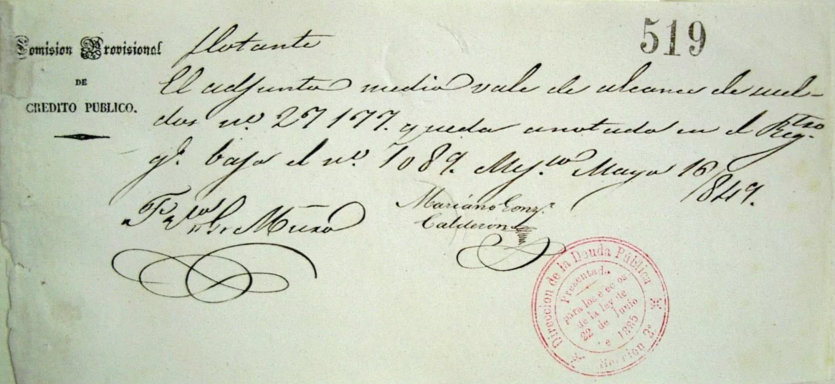 Comision Provisional
DE
CREDITO PUBLICO.
519
flotante
El adjunto medio vale de alcance de suel-
dos nº 27177. queda anotado en el Regtro
gl. bajo el nº 1089. Mejco Mayo 16/849.
Mariano Gonz.
Calderon
Direccion de la Deuda Pública
Seccion 2ª
Presentada
para los efectos
de la ley de
22 de Junio
de 1885